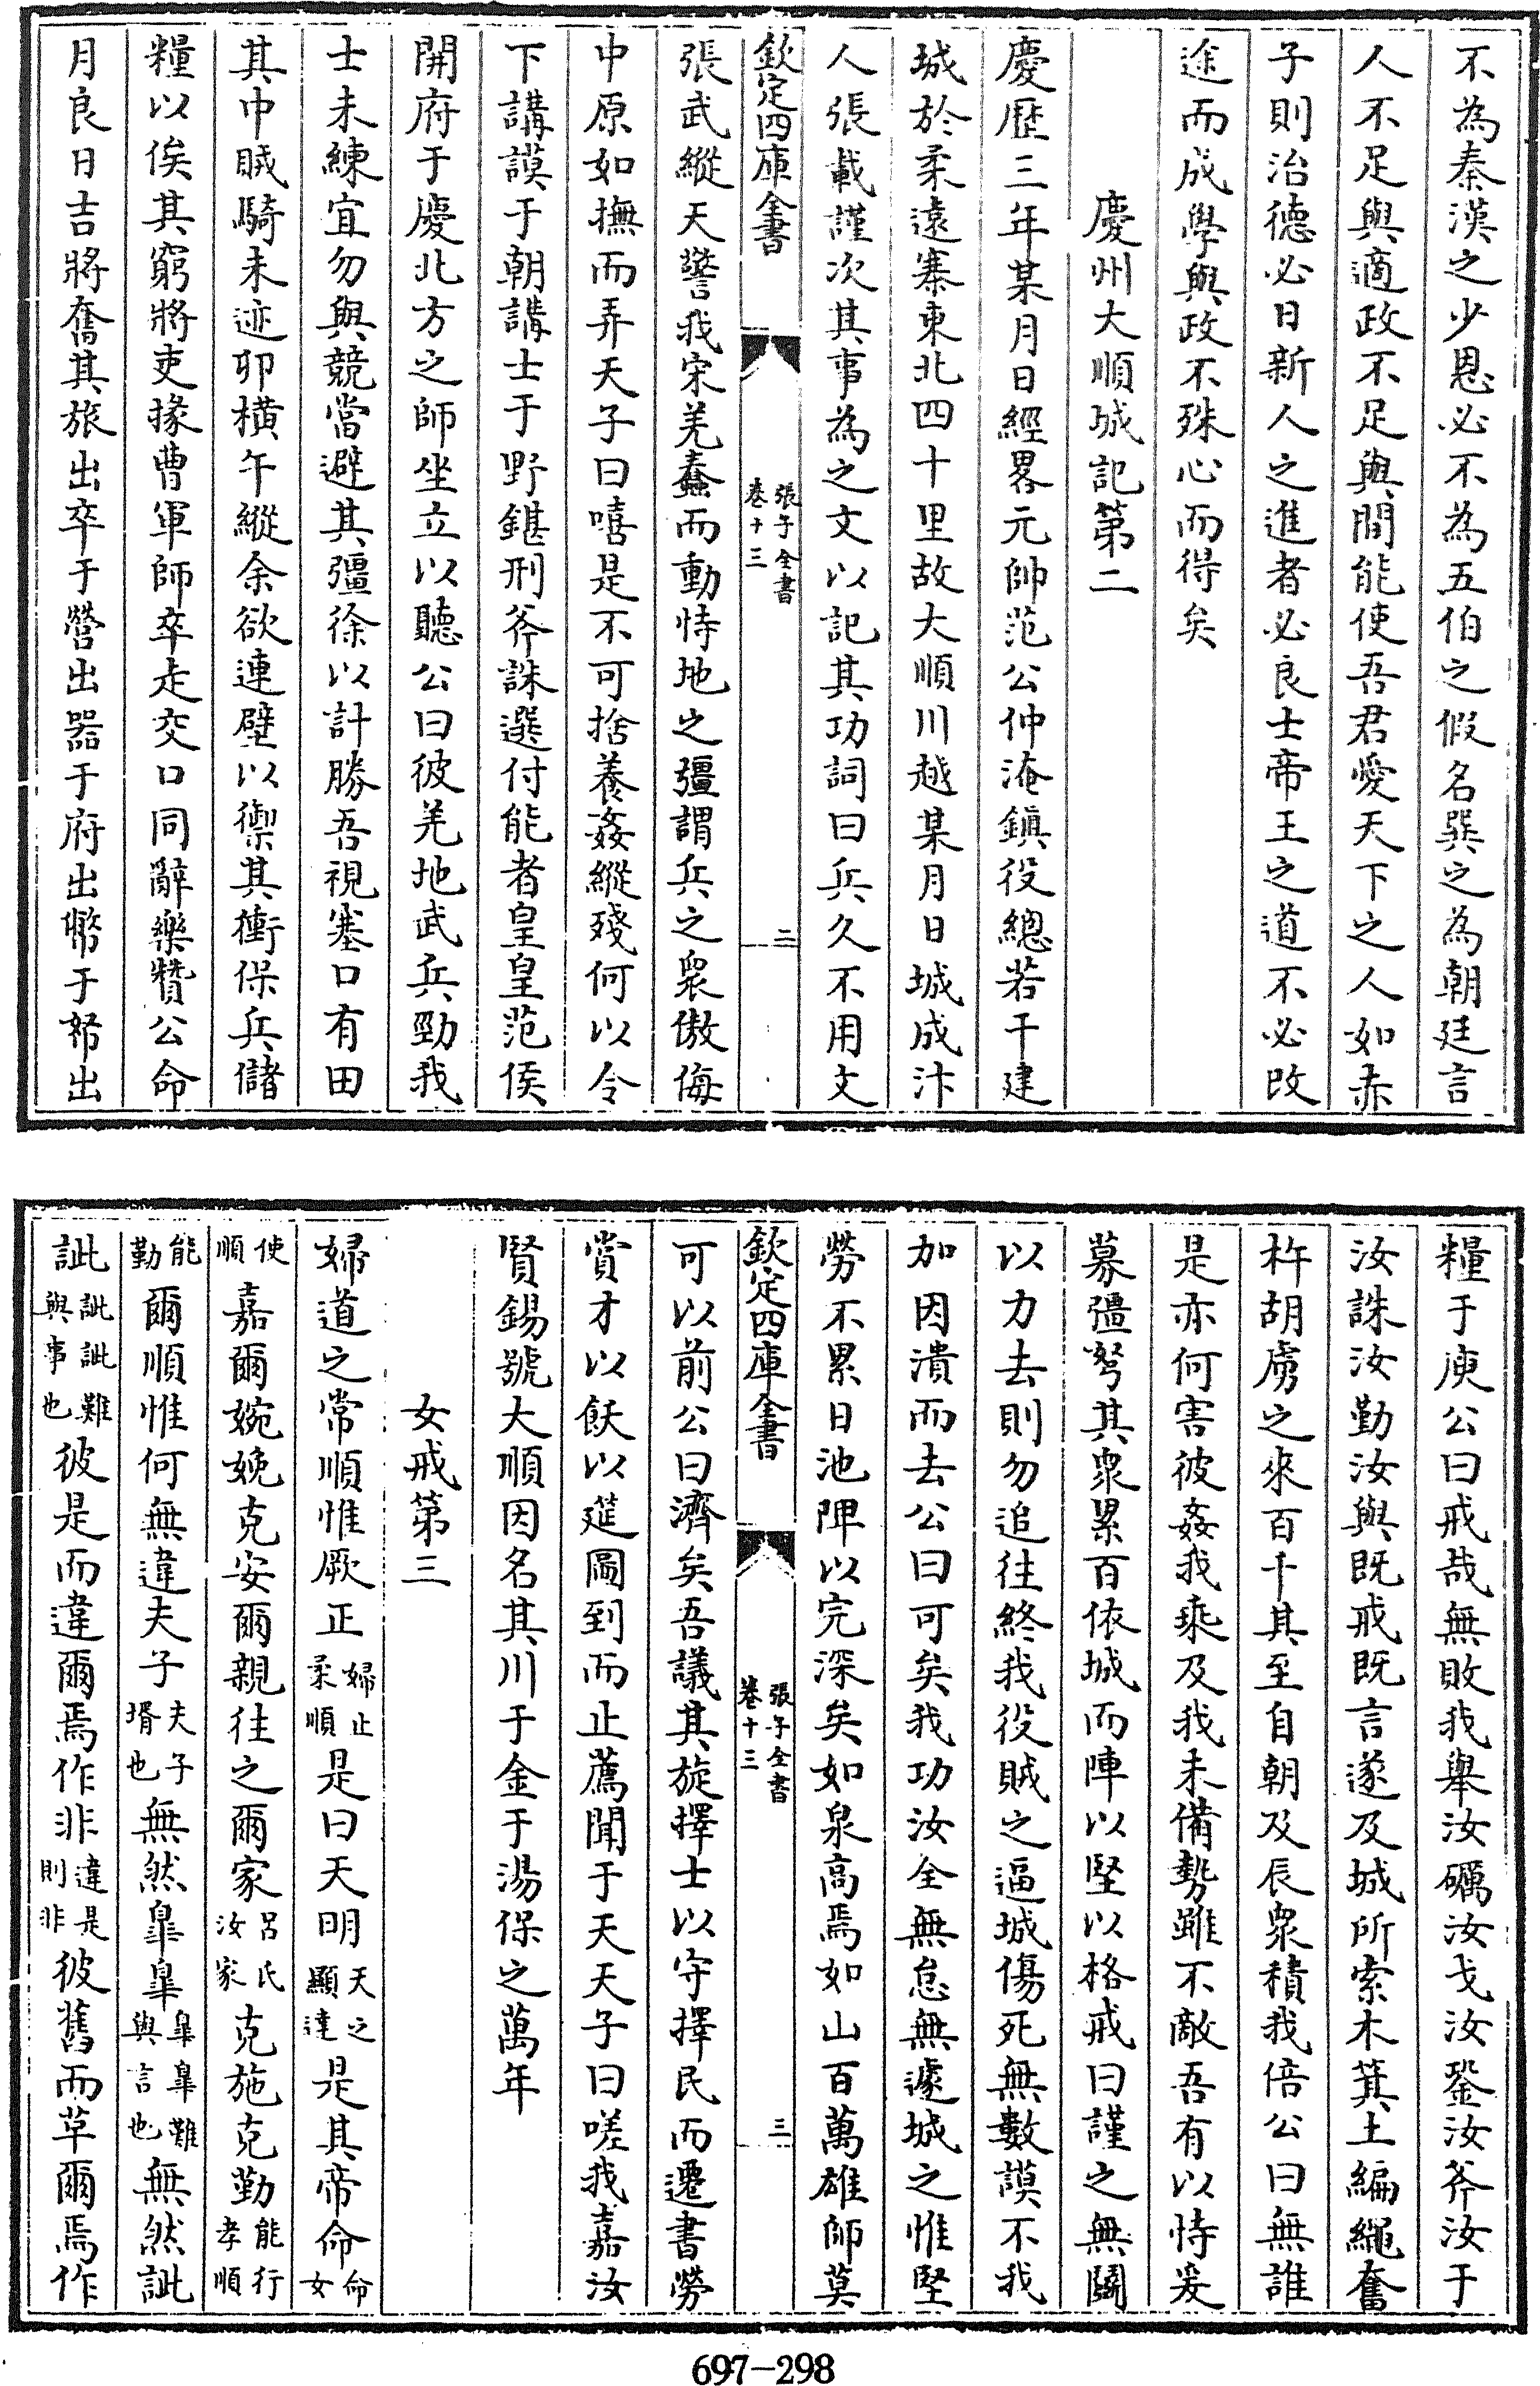 不為秦漢之少恩必不為五伯之假名巽之為朝廷言
人不足與適政不足與間能使吾君愛天下之人如赤
子則治德必日新人之進者必良士帝王之道不必改
途而成學與政不殊心而得矣
慶州大順城記第二
慶歷三年某月日經畧元帥范公仲淹鎮役總若干建
城於柔遠寨東北四十里故大順川越某月日城成汴
人張載謹次其事為之文以記其功詞曰兵久不用文
欽定四庫全書
張子全書
卷十三
二
張武縱天警我宋羌蠢而動恃地之彊謂兵之衆傲侮
中原如撫而弄天子曰嘻是不可捨養姦縱殘何以令
下講謨于朝講士于野鍖刑斧誅選付能者皇皇范侯
開府于慶北方之師坐立以聽公曰彼羌地武兵勁我
士未練宜勿與競當避其彊徐以計勝吾視塞口有田
其中賊騎未迹卯橫午縱余欲連壁以禦其衝保兵儲
糧以俟其窮將吏掾曹軍師卒走交口同辭樂贊公命
月良日吉將奮其旅出卒于營出器于府出幣于帑出
糧于庾公曰戒哉無敗我舉汝礪汝戈汝鋻汝斧汝于
汝誅汝勤汝與既戒既言遂及城所索木箕土編繩奮
杵胡虜之來百千其至自朝及辰衆積我倍公曰無誰
是亦何害彼姦我乘及我未備勢雖不敵吾有以恃爰
募彊弩其衆累百依城而陣以堅以格戒曰謹之無鬭
以力去則勿追往終我役賊之逼城傷死無數謨不我
加因潰而去公曰可矣我功汝全無怠無遽城之惟堅
勞不累日池陴以完深矣如泉高焉如山百萬雄師莫
欽定四庫全書
張子全書
卷十三
三
可以前公曰濟矣吾議其旋擇士以守擇民而遷書勞
賞才以飫以筵圖到而止薦聞于天天子曰嗟我嘉汝
賢錫號大順因名其川于金于湯保之萬年
女戒第三
婦道之常順惟厥正婦止柔順是曰天明天之顯達是其帝命命女
使順嘉爾婉娩克安爾親往之爾家呂氏汝家克施克勤能行孝順
能勤爾順惟何無違夫子夫子壻也無然臯臯臯臯難與言也無然訿
訿訿訿難與事也彼是而違爾焉作非違是則非彼舊而草爾焉作
697-298